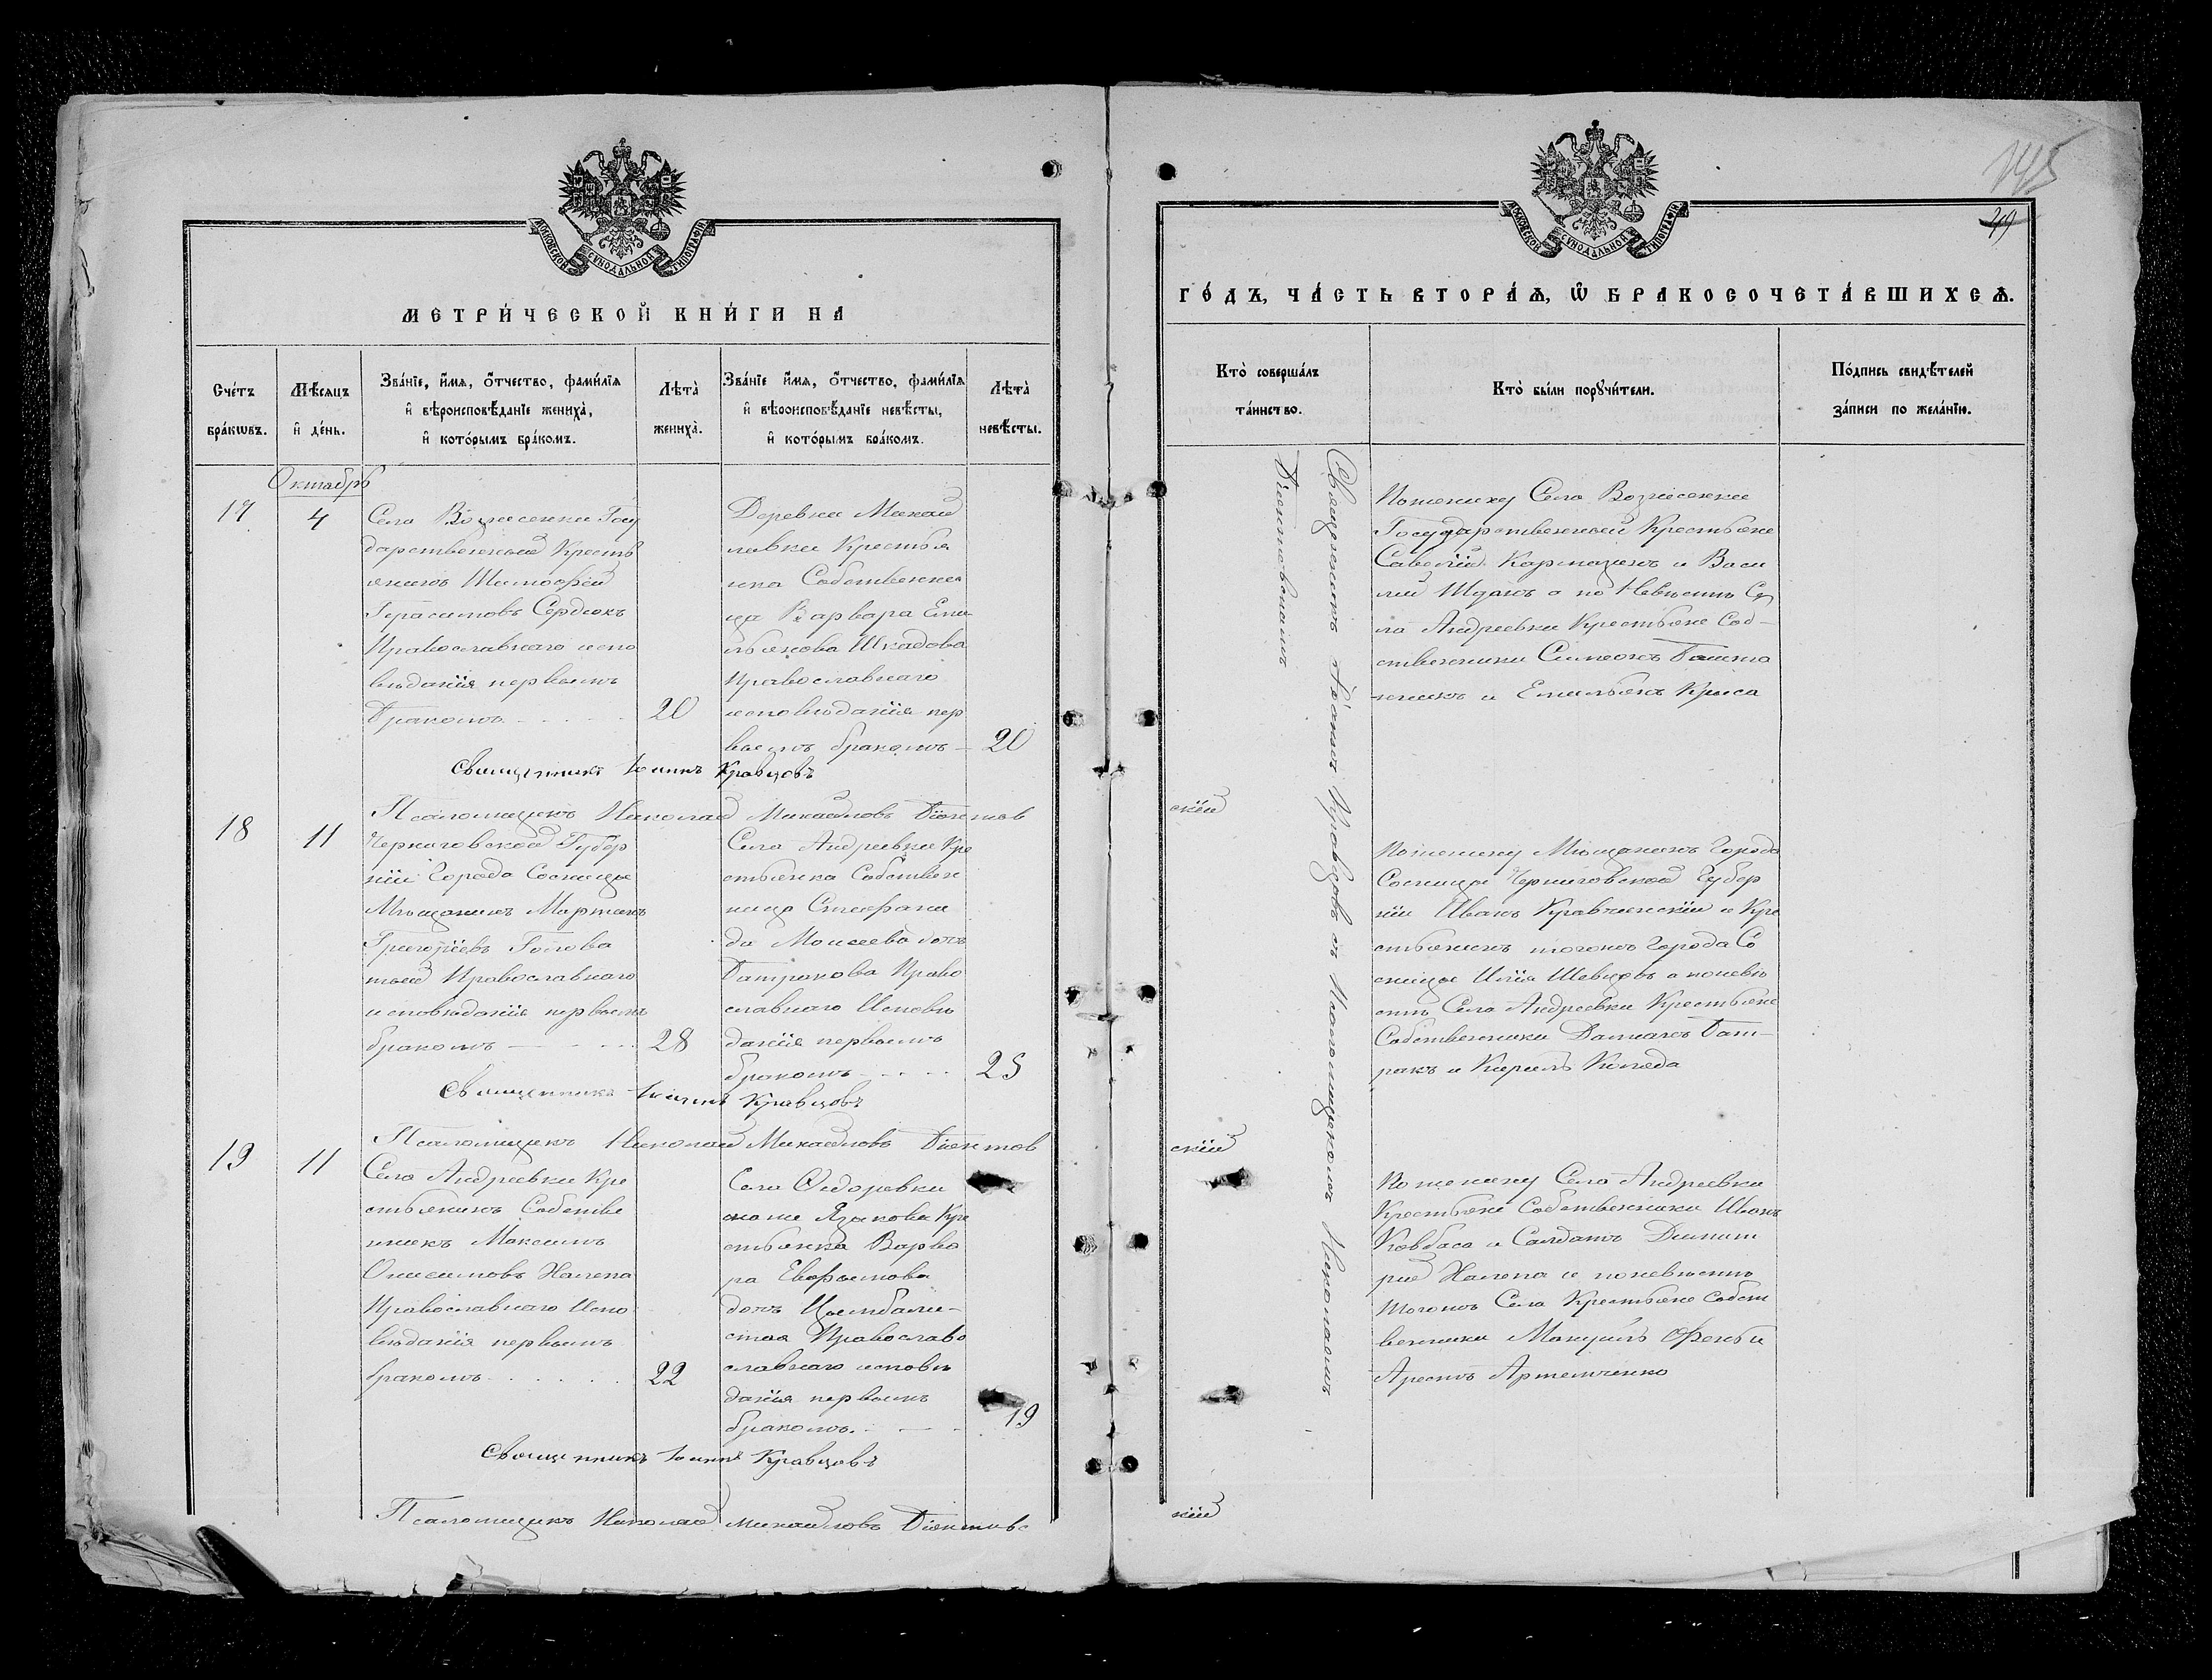 МОСКОВСКОЙ СѴНОДАЛЬНОЙ ТИПОГРАФІИ
МЕТРИ́ЧЕСКОЙ КНИ́ГИ НА
Сче́тъ бра́кѡвъ.
Мѣ́сяцъ и҆ де́нь.
Зва́нїе, и҆́мѧ, ѻ҆́тчество, фами́лїѧ
и҆ вѣроисповѣ́данїе жениха̀,
и҆ кото́рымъ бра́комъ.
Лѣта̀ жениха̀.
Зва́нїе и҆́мѧ, ѻ҆́тчество, фами́лїѧ
и҆ вѣроисповѣ́данїе невѣ́сты,
и҆ кото́рымъ бра́комъ.
Лѣта̀ невѣ́сты.
Октябрь
17
4
Села Вознесенки Госу
дарственный Кресть
янинъ Тимофей
Герасимовъ Сердюкъ
Православнаго испо
вѣданія первымъ
бракомъ
20
Деревки Михай
ловки Крестья
нка Собственни
ца Варвара Еми
льянова Шкадова
Православнаго
исповѣданія пер
вымъ бракомъ
20
Священникъ Іоаннъ Кравцовъ
Псаломщикъ Николай Михайловъ Діонтов
18
11
Черниговской Губер
ніи Города Сосницы
Мѣщанинъ Мартинъ
Григоріевъ Голова
тый Православнаго
исповѣданія первымъ
бракомъ
28
Села Андреевки Кре
стьянка Собствен
ница Стефани
да Моисеева дочь
Батракова Право
славнаго Исповѣ
данія первымъ
бракомъ
25
Священникъ Іоаннъ Кравцовъ
Псаломщикъ Николай Михайловъ Діонтов
19
11
Села Андреевки Кре
стьянинъ Собстве
нникъ Максимъ
Онисимовъ Халепа
Православнаго Испо
вѣданія первымъ
бракомъ
22
Села Федоровки
онаже Языкова Кре
стьянка Варва
ра Евфимова
дочь Цымбали-
стая Православо
славнаго исповѣ
данія первымъ
бракомъ.
19
Священникъ Іоаннъ Кравцовъ
Псаломщикъ Николай Михайловъ Діонтовс
145
49
МОСКОВСКОЙ СѴНОДАЛЬНОЙ ТИПОГРАФІИ
ГО́ДЪ, ЧА́СТЬ ВТОРА́Ѧ, Ѽ БРАКОСОЧЕТА́ВШИХСѦ.
Кто̀ соверша́лъ
та́инство.
Кто̀ бы́ли порꙋчи́тели.
По́дпись свидѣ́телей
за́писи по жела́нїю.
Священникъ Іоаннъ Кравцовъ съ Псаломщикомъ Николаемъ
Діонтовскимъ
Пожениху Села Вознесенки
Государственные Крестьяне
Савелій Кармазинъ и Васи
лій а по Невѣстѣ Се
ла Андреевки Крестьяне Соб-
ственники Симеонъ Башта
нникъ и Емильянъ Крыса
скій
Пожениху Мѣщанинъ Города
Сосницы Черниговской Губер
ніи Иванъ Кравчинскій и Кре
стьянинъ тогожъ Города Со
сницы Илія Шевцовъ а поневѣ
стѣ Села Андреевки Крестьяне
Собственники Даміанъ Бат-
ракъ и Кирилъ Коляда
скій
Пожениху Села Андреевки
Крестьяне Собственники Иванъ
Ковбаса и Салдатъ Димит
рій Халепа и поневѣстѣ
тогожъ Села Крестьяне Собст
венники
Артемченко
скій